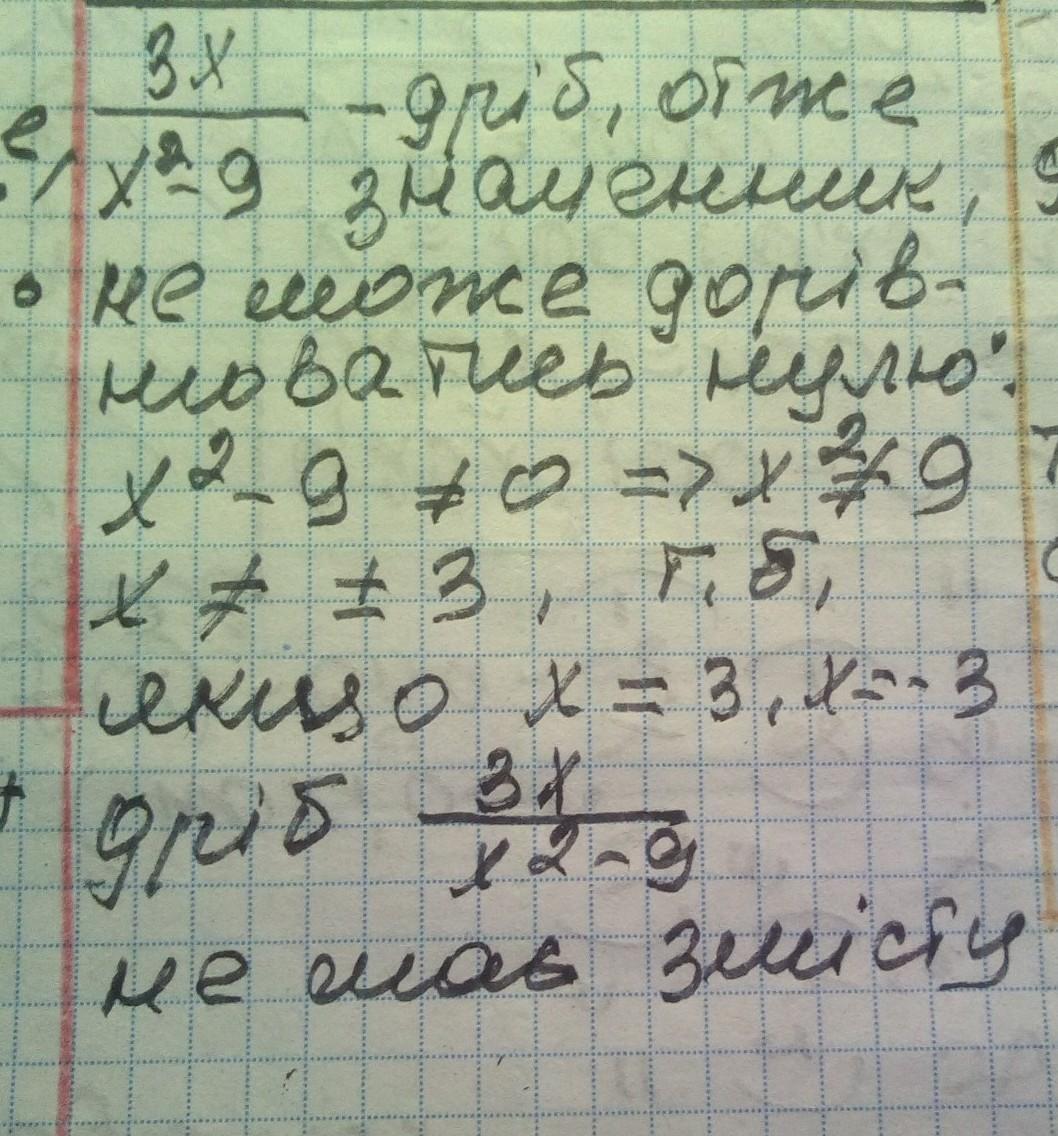 3x
x²-9 - дріб, отже
знаменник,
не може дорів-
нюватись нулю:
x² - 9 ≠ 0 => x² ≠ 9
x ≠ ± 3, т.б.
якщо x = 3, x = -3
дріб 3x
x2-9
не має змісту